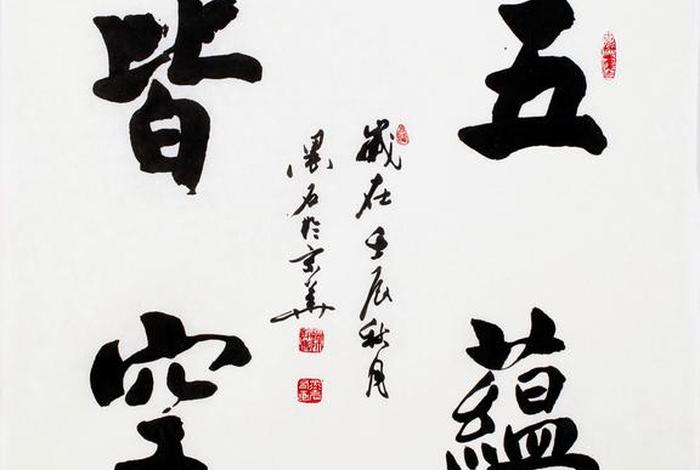 五蕴
皆空
岁在壬辰秋月
墨石于京华